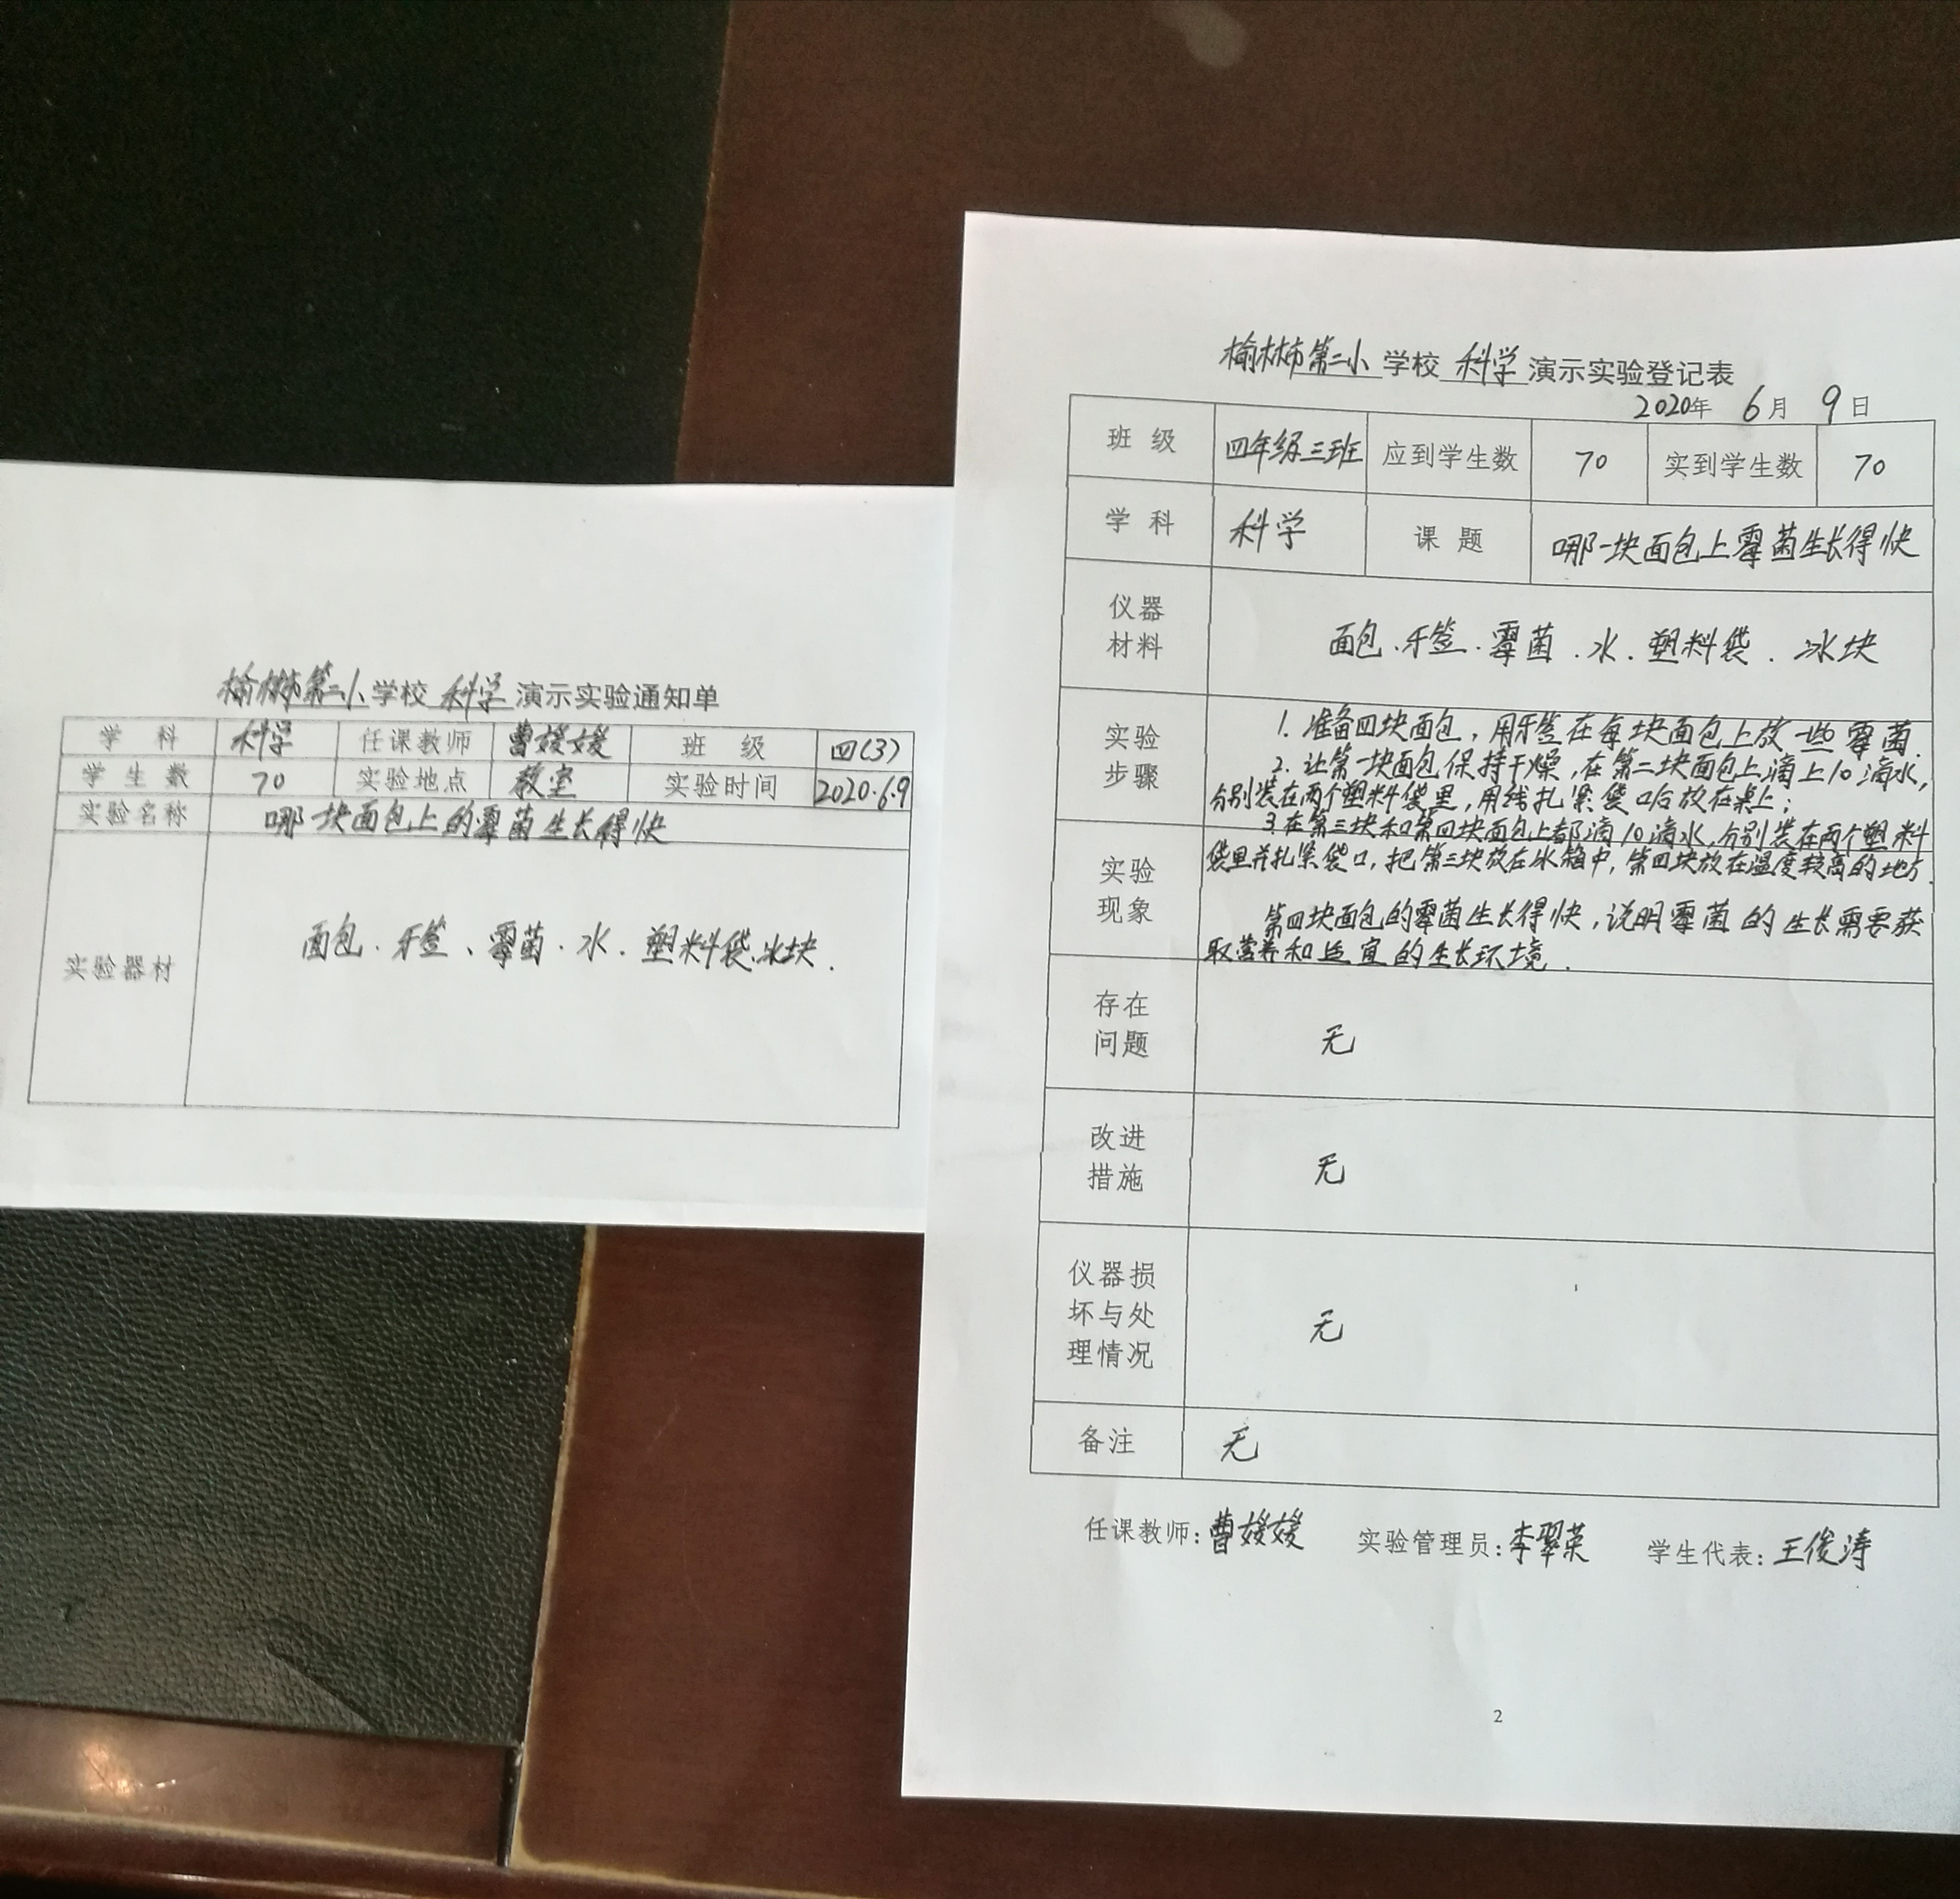 榆林市第二小学校 科学 演示实验通知单
学 科 科学 任课教师 曹媛媛 班 级 四(3)
学 生 数 70 实验地点 教室 实验时间 2020.6.9
实验名称 哪一块面包上的霉菌生长得快
实验器材 面包.牙签、霉菌.水.塑料袋.冰块.
榆林市第二小 学校 科学 演示实验登记表
2020年 6月 9日
班 级 四年级三班 应到学生数 70 实到学生数 70
学 科 科学 课 题 哪一块面包上霉菌生长得快
仪器
材料
面包.牙签.霉菌.水.塑料袋.冰块
实验
步骤
1.准备四块面包,用牙签在每块面包上放一些霉菌.
2.让第一块面包保持干燥,在第二块面包上滴上10滴水,
分别装在两个塑料袋里,用线扎紧袋口后放在桌上;
3.在第三块和第四块面包上都滴10滴水,分别装在两个塑料
袋里并扎紧袋口,把第三块放在冰箱中,第四块放在温度较高的地方.
实验
现象
第四块面包的霉菌生长得快,说明霉菌的生长需要获
取营养和适宜的生长环境.
存在
问题
无
改进
措施
无
仪器损
坏与处
理情况
无
备注 无
任课教师:曹媛媛 实验管理员:李翠荣 学生代表:王俊涛
2